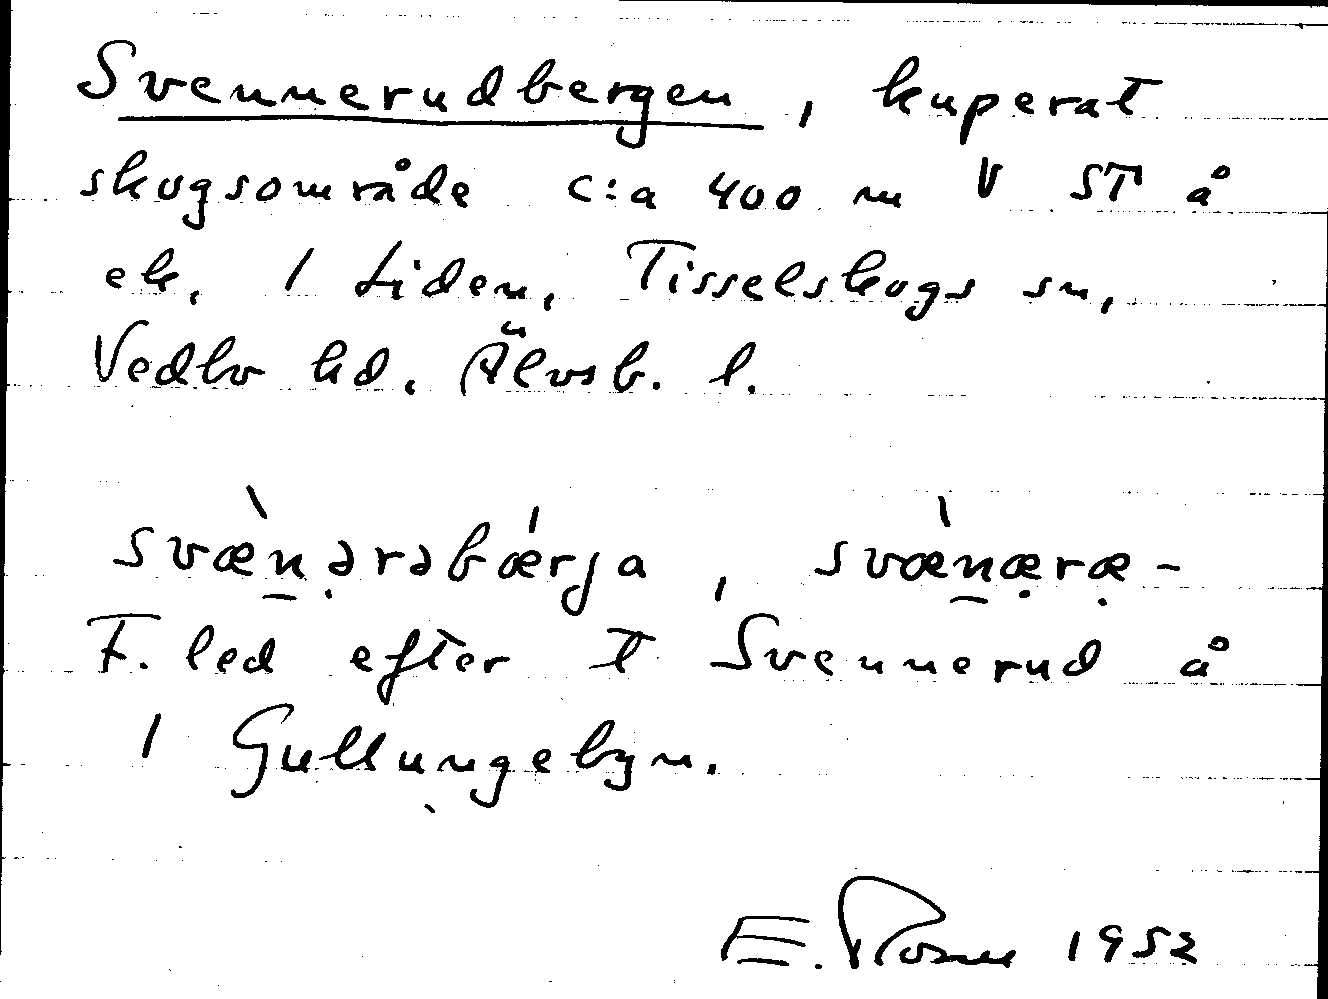 Svennerudbergen, kuperat
skogsområde c:a 400 m V ST å
ek. 1 Liden, Tisselskogs sn,
Vedbo hd. Älvsb. l.
svæ̀n̠ərəbǽrja, svæ̀n̠æræ-
F. led efter T Svennerud å
1 Gullungebyn.
E. Rosne 1952